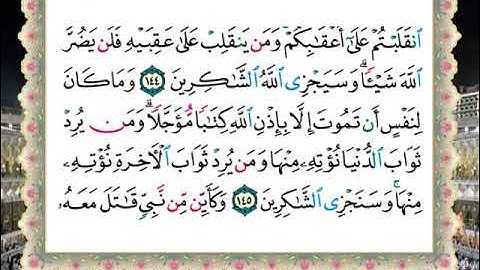 ٱنقَلَبۡتُمۡ عَلَىٰٓ أَعۡقَٰبِكُمۡۚ وَمَن يَنقَلِبۡ عَلَىٰ عَقِبَيۡهِ فَلَن يَضُرَّ
ٱللَّهَ شَيۡـٔٗاۗ وَسَيَجۡزِي ٱللَّهُ ٱلشَّٰكِرِينَ ١٤٤ وَمَا كَانَ
لِنَفۡسٍ أَن تَمُوتَ إِلَّا بِإِذۡنِ ٱللَّهِ كِتَٰبٗا مُّؤَجَّلٗاۗ وَمَن يُرِدۡ
ثَوَابَ ٱلدُّنۡيَا نُؤۡتِهِۦ مِنۡهَا وَمَن يُرِدۡ ثَوَابَ ٱلۡأٓخِرَةِ نُؤۡتِهِۦ
مِنۡهَاۚ وَسَنَجۡزِي ٱلشَّٰكِرِينَ ١٤٥ وَكَأَيِّن مِّن نَّبِيّٖ قَٰتَلَ مَعَهُۥ